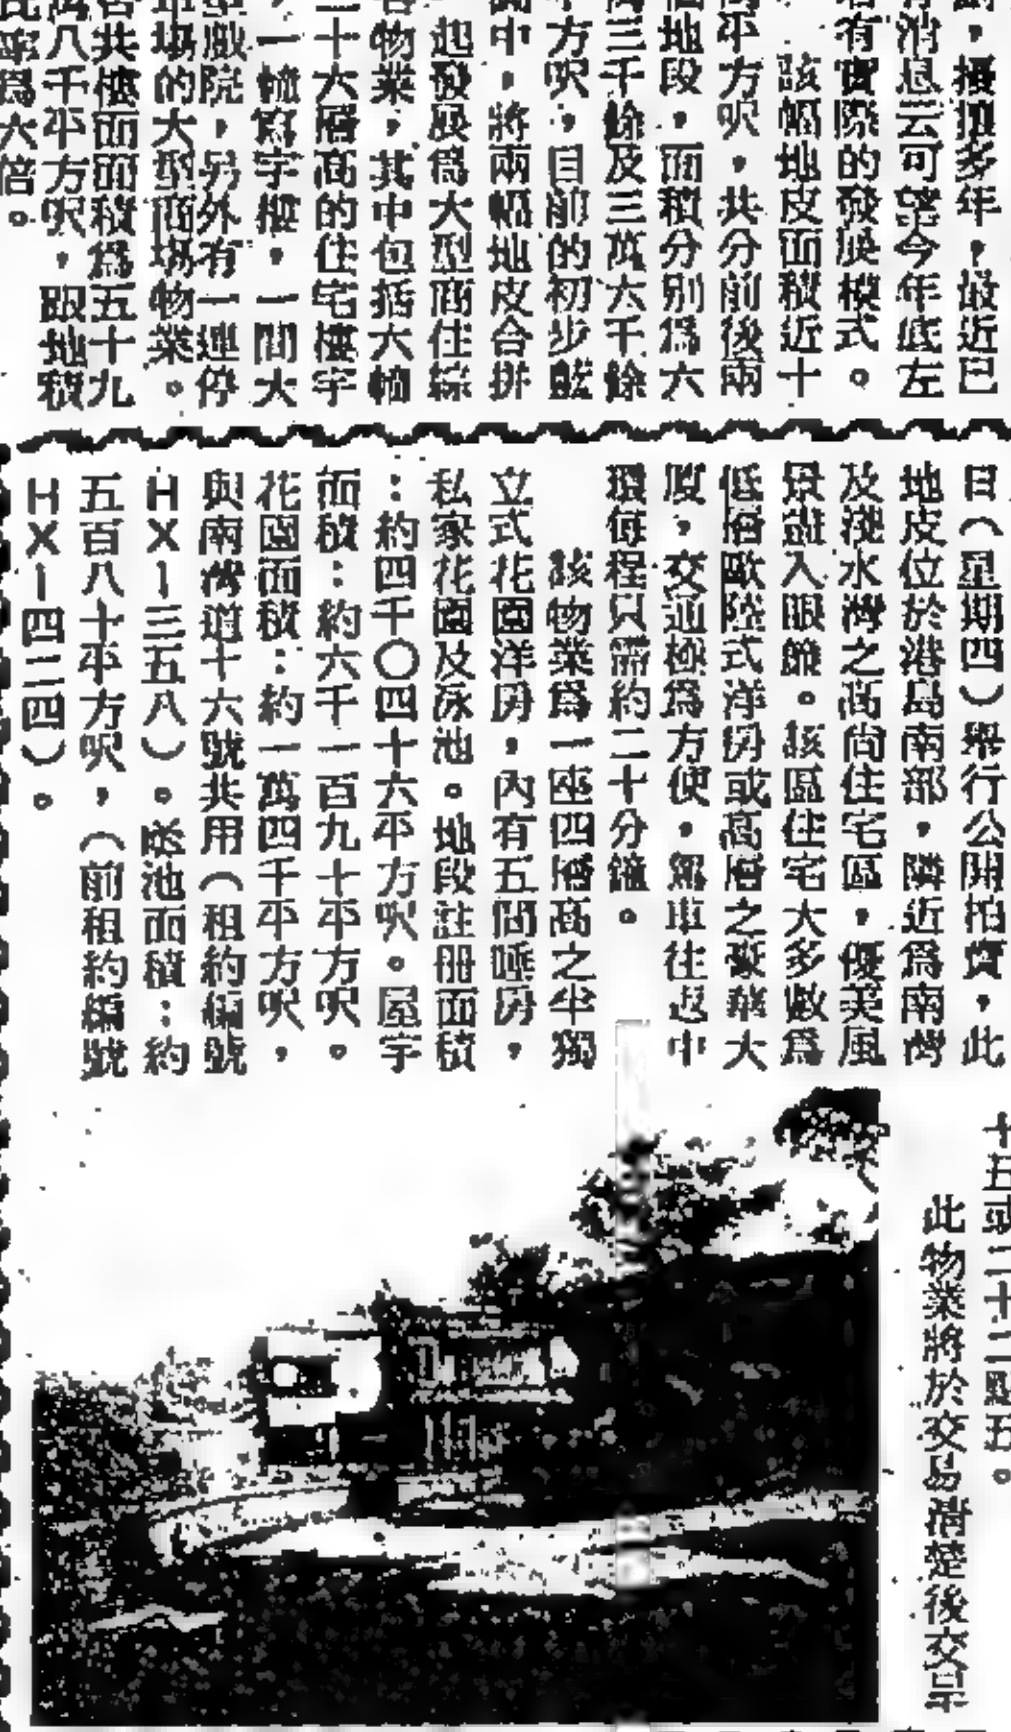 ，擾攘多年，最近已
消息云可望今年底左
有實際的發展模式。
該幅地皮面積近十
平方呎，共分前後兩
地段，面積分別為六
三千餘及三萬六千餘
方呎，目前的初步藍
中，將兩幅地皮合拼
起發展為大型商住綜
物業，其中包括六幢
二十六層高的住宅樓宇
，一幢寫字樓，一間大
戲院，另外有一連停
場的大型商場物業。
共樓面面積為五十九
萬八千平方呎，跟地積
此率為六倍。
日（星期四）舉行公開拍賣，此
地皮位於港島南部，隣近為南灣
及淺水灣之高尚住宅區，優美風
景盡入眼簾。該區住宅大多數為
低層歐陸式洋房或高層之豪華大
廈，交通極為方便，駕車往返中
環每程只需約二十分鐘。
該物業為一座四層高之半獨
立式花園洋房，內有五間睡房，
私家花園及泳池。地段註冊面積
：約四千〇四十六平方呎。屋宇
面積：約六千一百九十平方呎。
花園面積：約一萬四千平方呎，
與南灣道十六號共用（租約編號
ＨＸ－三五八）。泳池面積：約
五百八十平方呎，（前租約編號
ＨＸ－四二四）。
十五或二十二點五。
此物業將於交易清楚後交吉